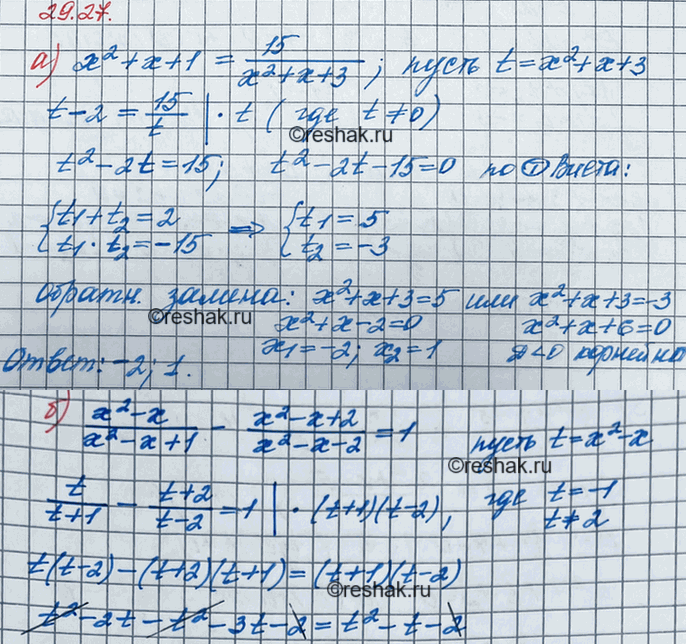 29.27.
а) x²+x+1 = 15/(x²+x+3); пусть t=x²+x+3
t-2 = 15/t | · t (где t≠0)
©reshak.ru
t²-2t=15; t²-2t-15=0 по Т Виета:
{t₁+t₂=2 ⇒ {t₁=5
{t₁·t₂=-15 {t₂=-3
Обратн. замена: x²+x+3=5 или x²+x+3=-3
©reshak.ru
x²+x-2=0 x²+x+6=0
x₁=-2; x₂=1 D<0 корней нет
Ответ: -2; 1.
б) (x²-x)/(x²-x+1) - (x²-x+2)/(x²-x-2) = 1 пусть t=x²-x
©reshak.ru
t/(t+1) - (t+2)/(t-2) = 1 | · (t+1)(t-2), где t=-1
t≠2
t(t-2)-(t+2)(t+1)=(t+1)(t-2)
©reshak.ru
t²-2t-t²-3t-2=t²-t-2